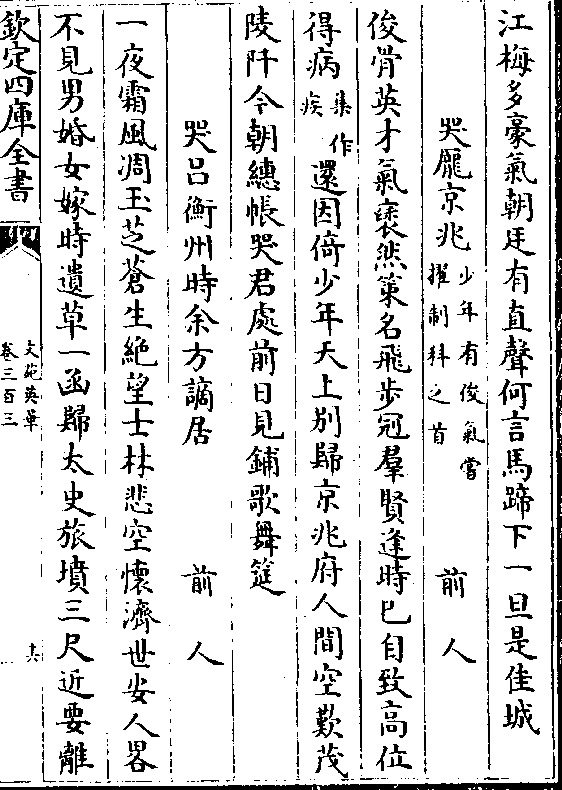 江梅多豪氣朝廷有直聲何言馬蹄下一旦是佳城
哭龎京兆少年有俊氣嘗擢制科之首 前人
俊骨英才氣褎然策名飛步冠羣賢逢時已自致高位
得病集作疾還因倚少年天上别歸京兆府人間空歎茂
陵阡今朝繐帳哭君處前日見鋪歌舞筵
哭呂衡州時余方謫居 前人
一夜霜風凋玉芝蒼生絶望士林悲空懷濟世安人畧
不見男婚女嫁時遺草一函歸太史旅墳三尺近要離
欽定四庫全書
文苑英華
卷三百三
十六